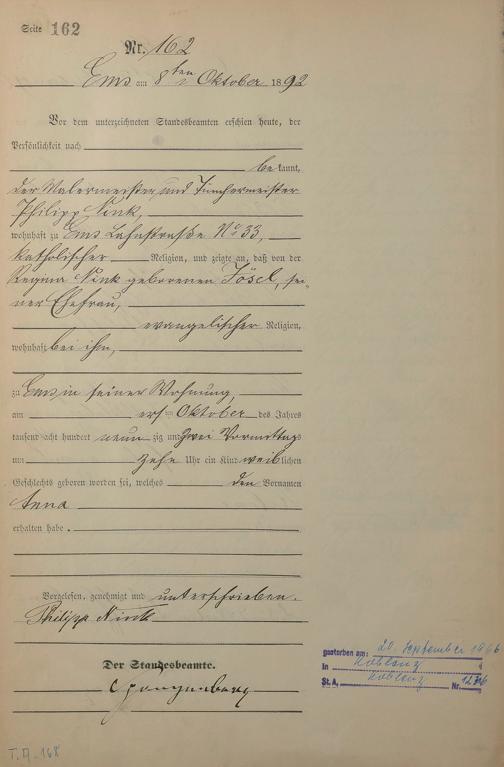 Seite 162
Nr. 162
Ems am 8ten Oktober 1892
Vor dem unterzeichneten Standesbeamten erschien heute, der
Persönlichkeit nach
bekannt,
der Malermeister und Tünchermeister
Philipp Kink,
wohnhaft zu Ems Lahnstraße No 33,
katholischer Religion, und zeigte an, daß von der
Regina Kink geborenen Jösel, sei-
ner Ehefrau,
evangelischer Religion,
wohnhaft bei ihm,
zu Ems in seiner Wohnung,
am Oktober des Jahres
tausend acht hundert neunzig und zwei Vormittags
um zehn Uhr ein Kind weiblichen
Geschlechts geboren worden sei, welches den Vornamen
Anna
erhalten habe.
Vorgelesen, genehmigt und unterschrieben.
Philipp Kink
Der Standesbeamte.
gestorben am: 20. September 1966
in Koblenz
St. A. Koblenz Nr.
T.A. 168